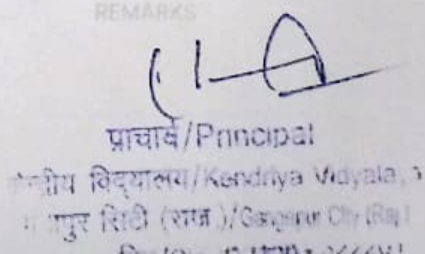 REMARKS
प्राचार्य/Principal
केन्द्रीय विद्यालय/Kendriya Vidyala
गंगापुर सिटी (राज.)/Gangapur City (Raj.)